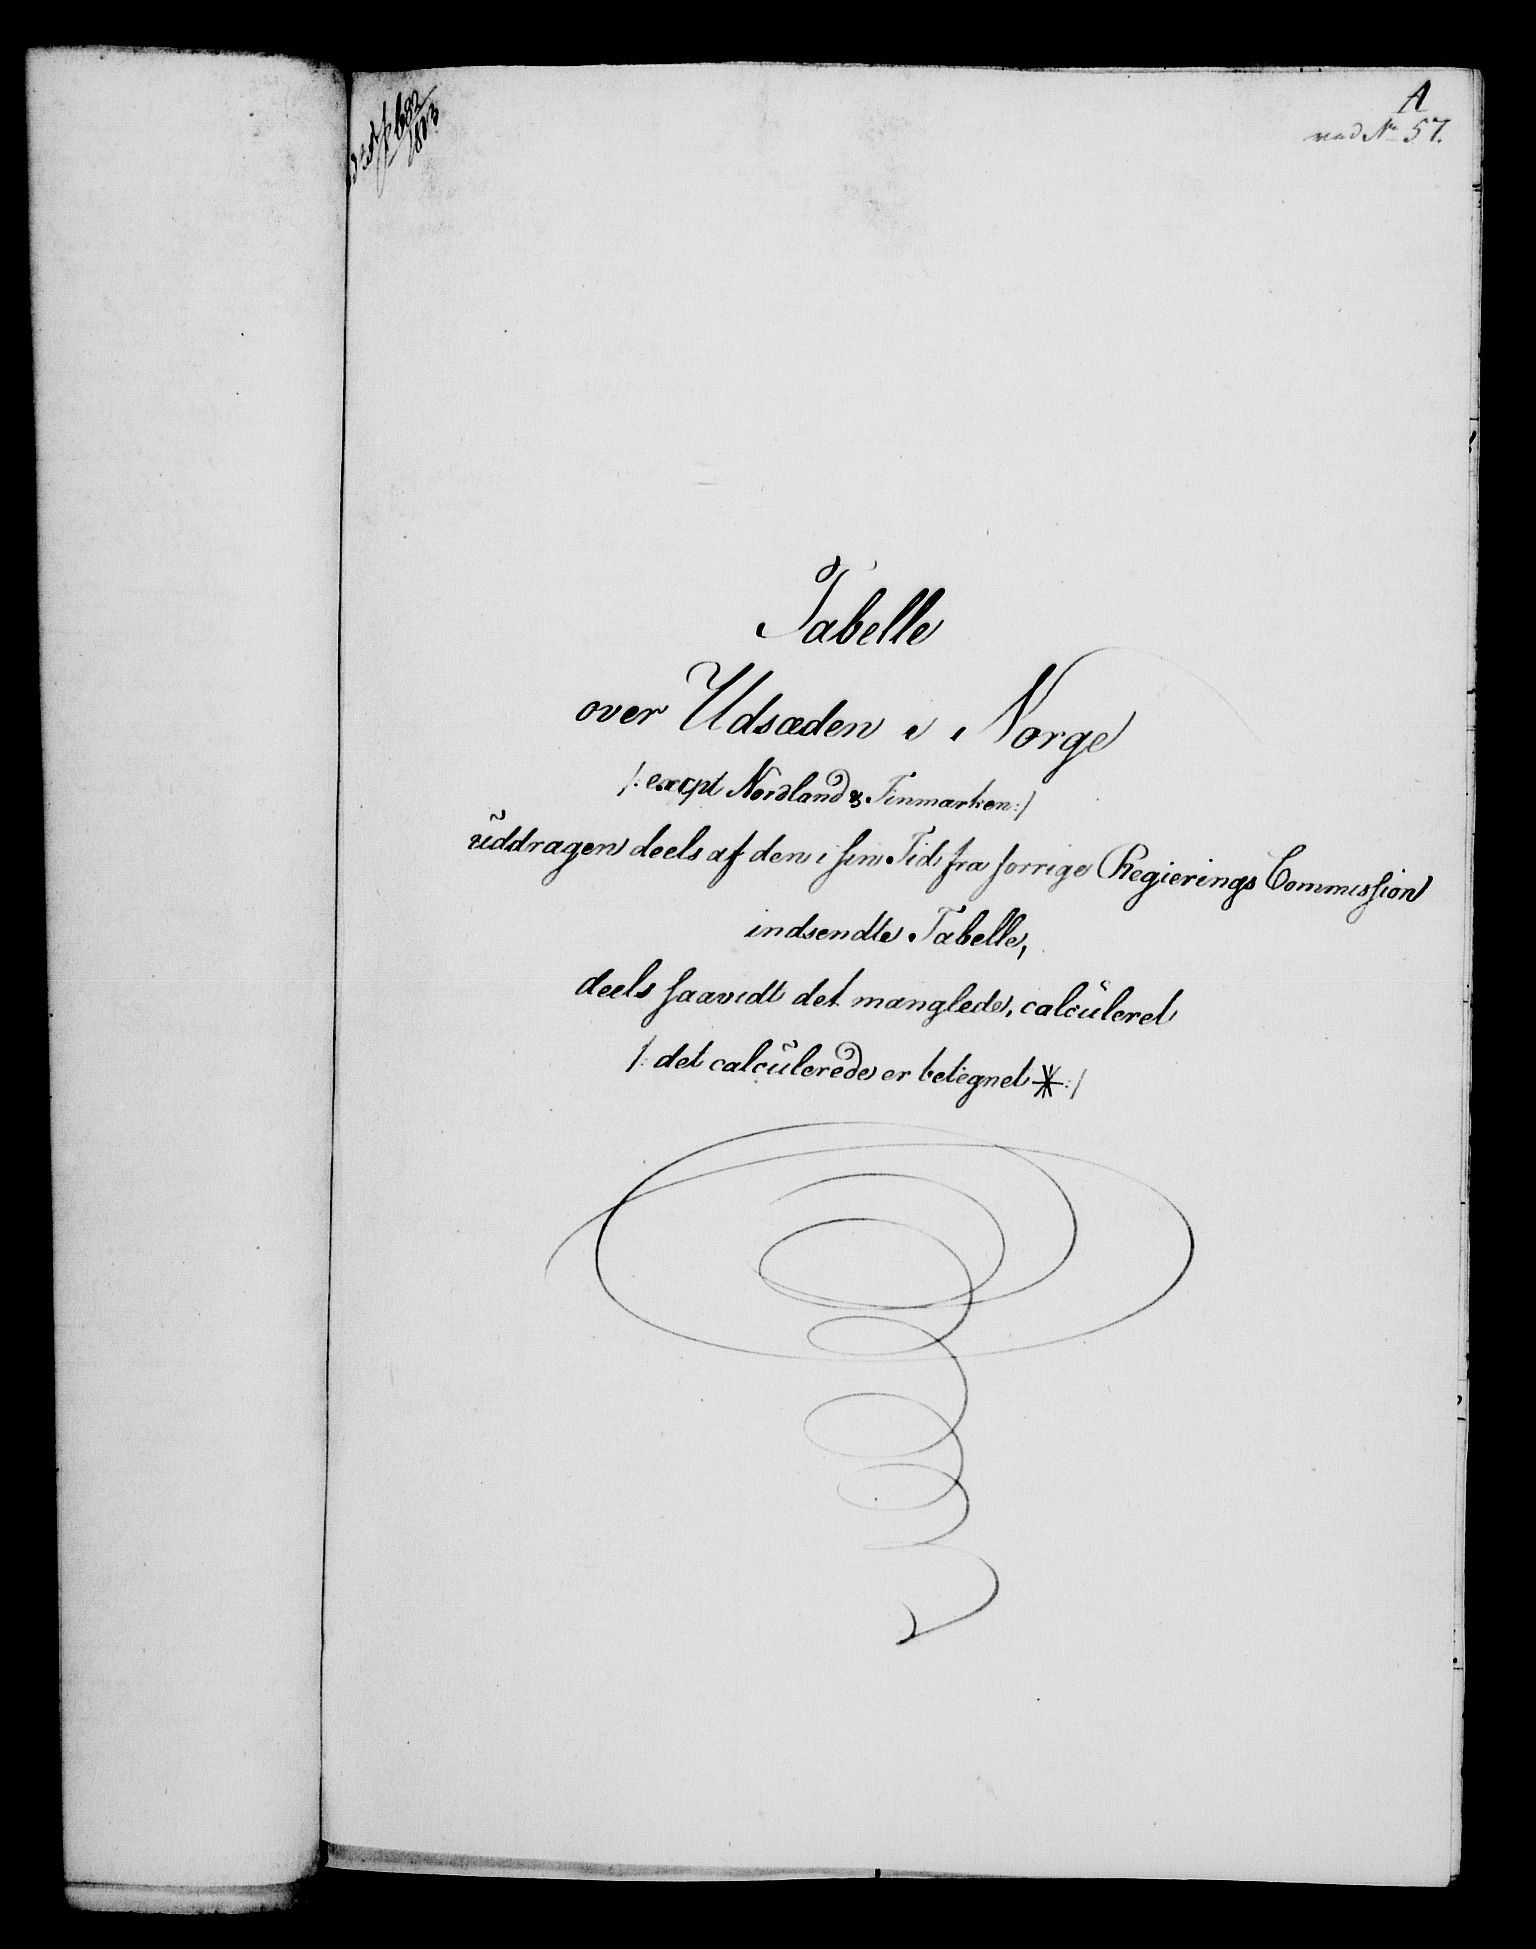 A
ved No 57.
682
1813
Tabelle
over Udsæden i Norge
/: excpt Nordland & Finmarken :/
uddragen deels af den i sin Tid fra forrige Regierings Commission
indsendte Tabelle,
deels saavidt det manglede, calculeret
/: det calculerede er betegnet * :/